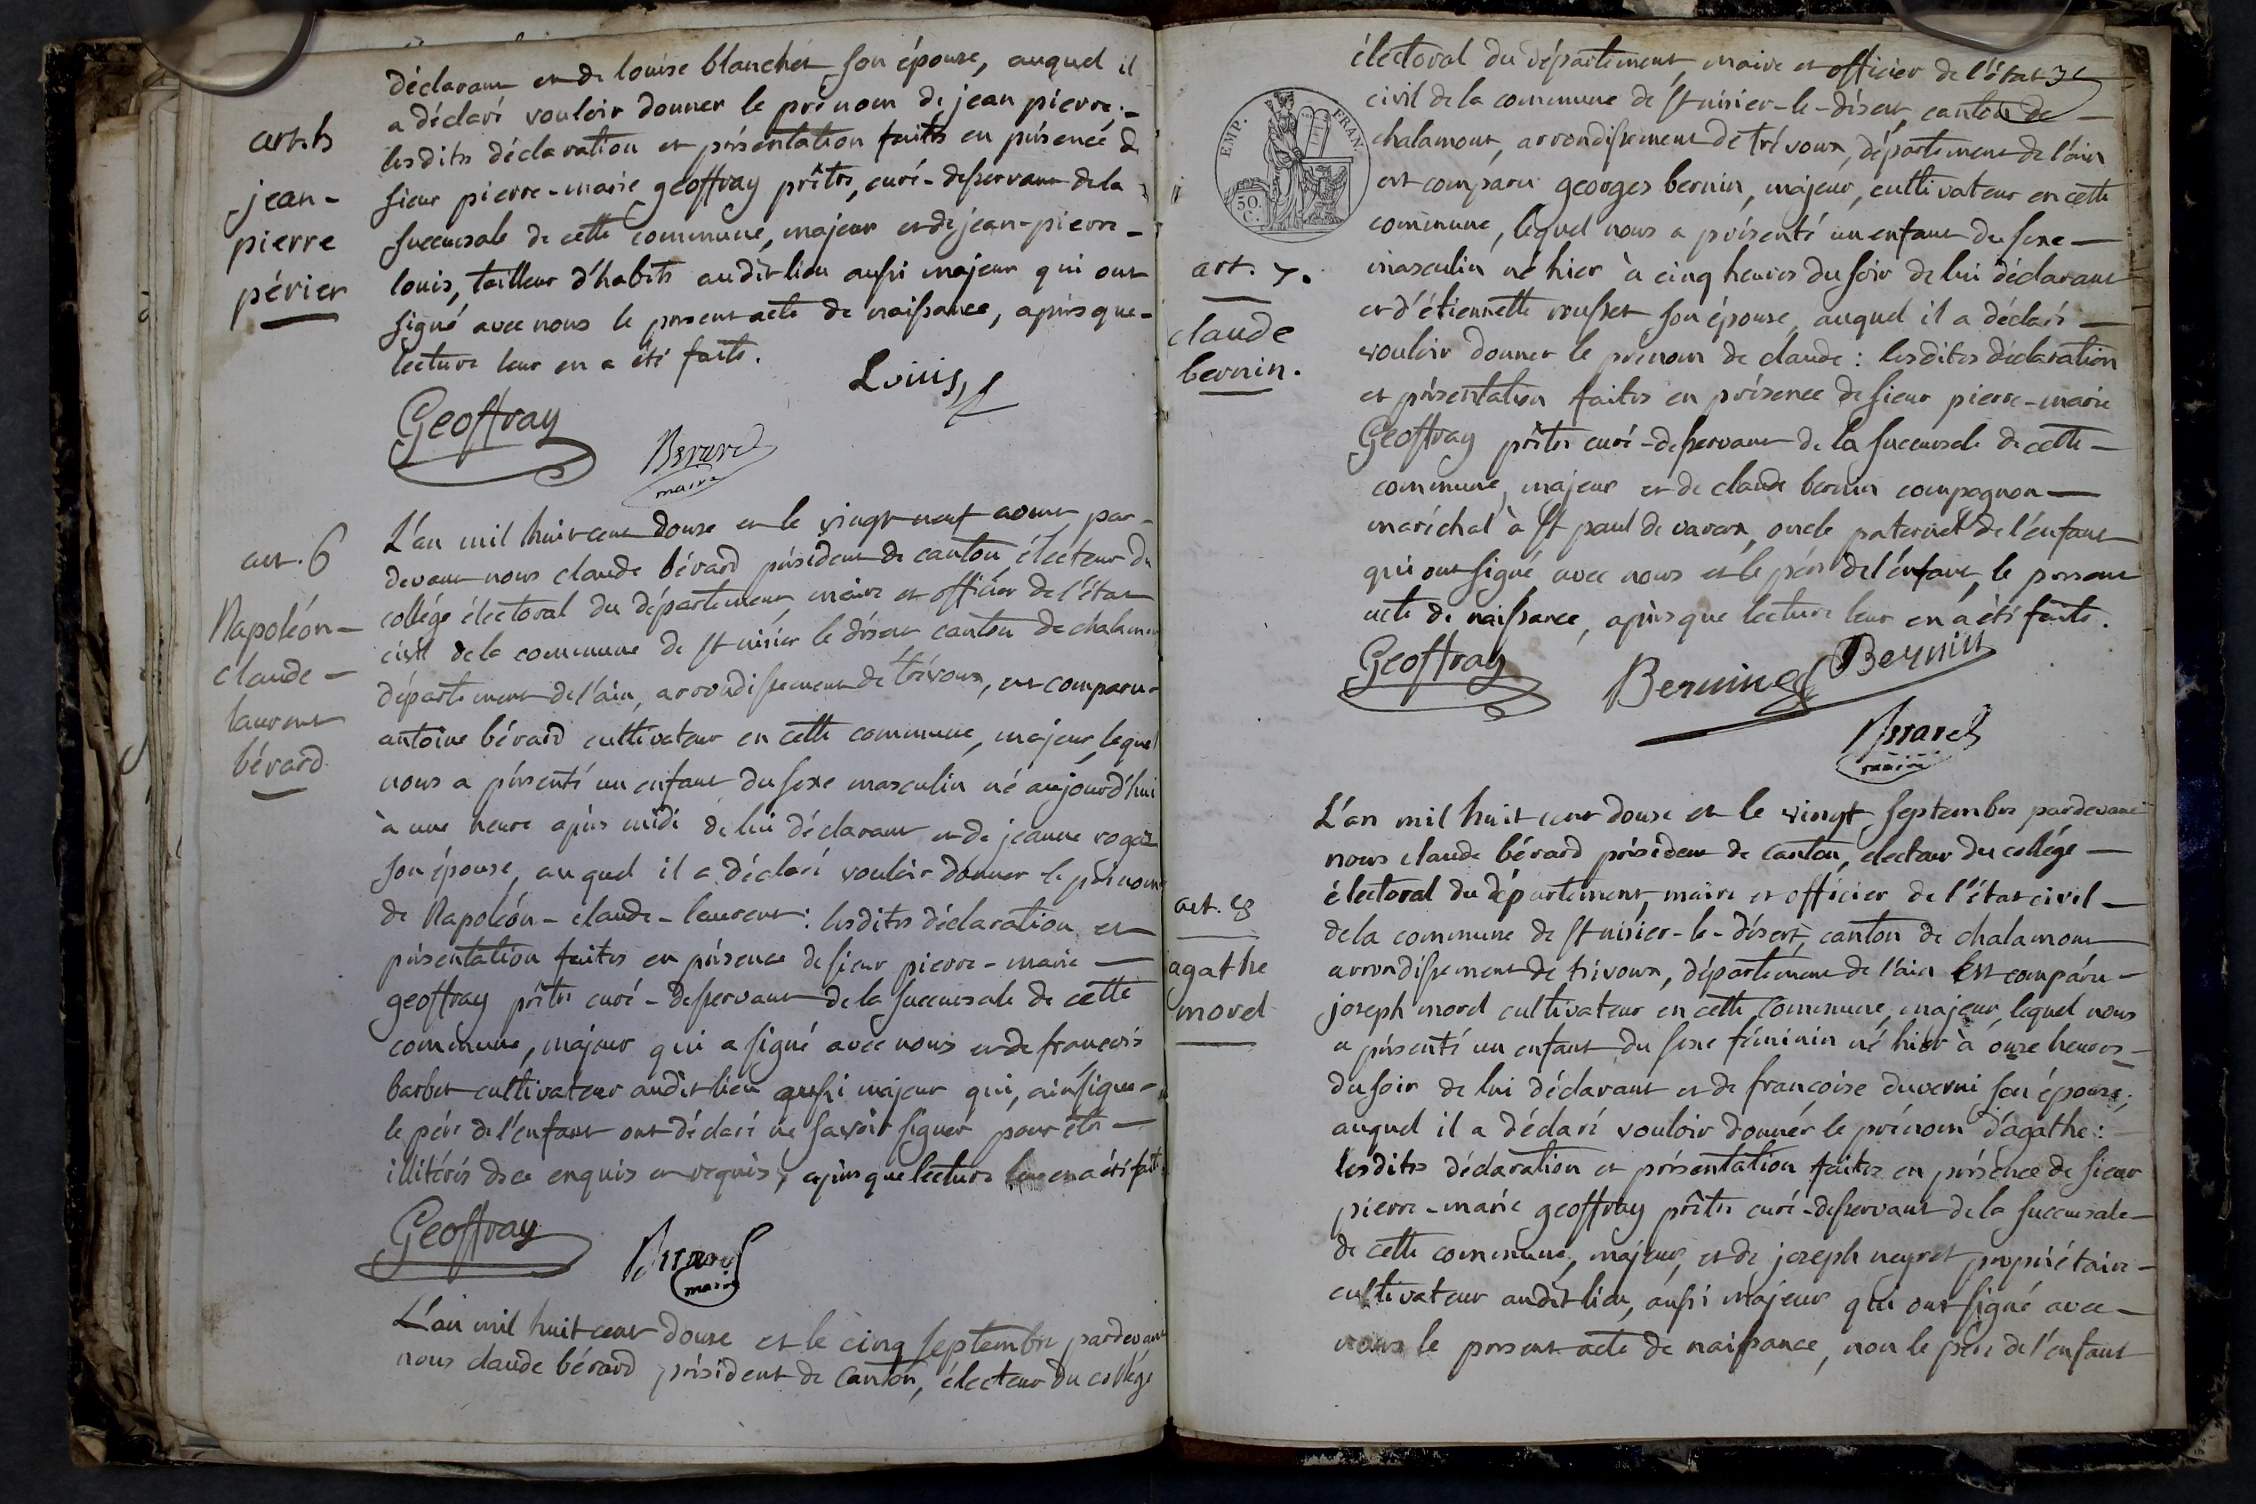 déclarant et de louise blanchet son épouse, auquel il
a déclaré vouloir donner le prénom de jean pierre; -
art. 5
lesdites déclaration et présentation faites en présence de
sieur pierre-marie geoffray prêtre, curé-desservant de la
jean-
pierre
périer
succursale de cette commune, majeur et de jean-pierre-
louis, tailleur d'habits audit lieu aussi majeur qui ont
signé avec nous le present acte de naissance, après que-
lecture leur en a été faite.
Louis
Geoffray
Berard
maire
art. 6
Napoléon-
claude-
laurent
bérard
L'an mil huit cent douze et le vingt neuf aoust par-
devant nous claude bérard président de canton, électeur du
collége électoral du département, maire et officier de l'état
civil de la commune de st nisier le désert canton de chalamont
département de l'ain, arrondissement de trévoux, est comparu-
antoine bérard cultivateur en cette commune, majeur, lequel
nous a présenté un enfant du sexe masculin né aujourd'hui
à une heure après midi de lui déclarant et de jeanne
son épouse, auquel il a déclaré vouloir donner le prénom
de Napoléon-claude-laurent: lesdites déclaration et
présentation faites en présence de sieur pierre-marie-
geoffray prêtre curé-desservant de la succursale de cette
commune, majeur qui a signé avec nous et de françois
barbet cultivateur audit lieu aussi majeur qui, ainsi que-
le père de l'enfant ont déclaré ne savoir signer pour être-
illitérés de ce enquis et requis, après que lecture leur en a été faite
Geoffray
Berard
maire
L'an mil huit cent douze et le cinq septembre pardevant
nous claude bérard président de canton, électeur du collége
électoral du département, maire et officier de l'état
civil de la commune de st nisier-le-désert, canton de-
chalamont, arrondissement de trévoux, département de l'ain
EMP. FRAN.
50.
C.
est comparu georges bernin, majeur, cultivateur en cette
commune, lequel nous a présenté un enfant du sexe-
art. 7.
claude
bernin.
masculin né hier à cinq heures du soir de lui déclarant
et d'étiennette rousset son épouse, auquel il a déclaré-
vouloir donner le prénom de claude: lesdites déclaration
et présentation faites en présence de sieur pierre-marie
Geoffray prêtre curé-desservant de la succursale de cette-
commune, majeur et de claude bernin compagnon-
maréchal à st paul de varax, oncle paternel de l'enfant
qui ont signé avec nous et le père de l'enfant, le present
acte de naissance, après que lecture leur en a été faite.
Geoffray
Bernin
Bernin
Berard
maire
L'an mil huit cent douze et le vingt septembre pardevant
nous claude bérard président de canton, electeur du collége-
électoral du département, maire et officier de l'état civil-
art. 8
agathe
morel
de la commune de st nisier-le-désert, canton de chalamont
arrondissement de trévoux, département de l'ain Est comparu-
joseph morel cultivateur en cette commune, majeur, lequel nous
a présenté un enfant du sexe féminin né hier à onze heures-
du soir de lui déclarant et de françoise duverni son épouse;
auquel il a déclaré vouloir donner le prénom d'agathe:
lesdites déclaration et présentation faites en présence de sieur
pierre-marie geoffray prêtre curé-desservant de la succursale-
de cette commune, majeur, et de joseph neyret propriétaire-
cultivateur audit lieu, aussi majeur qui ont signé avec-
nous le present acte de naissance, non le père de l'enfant